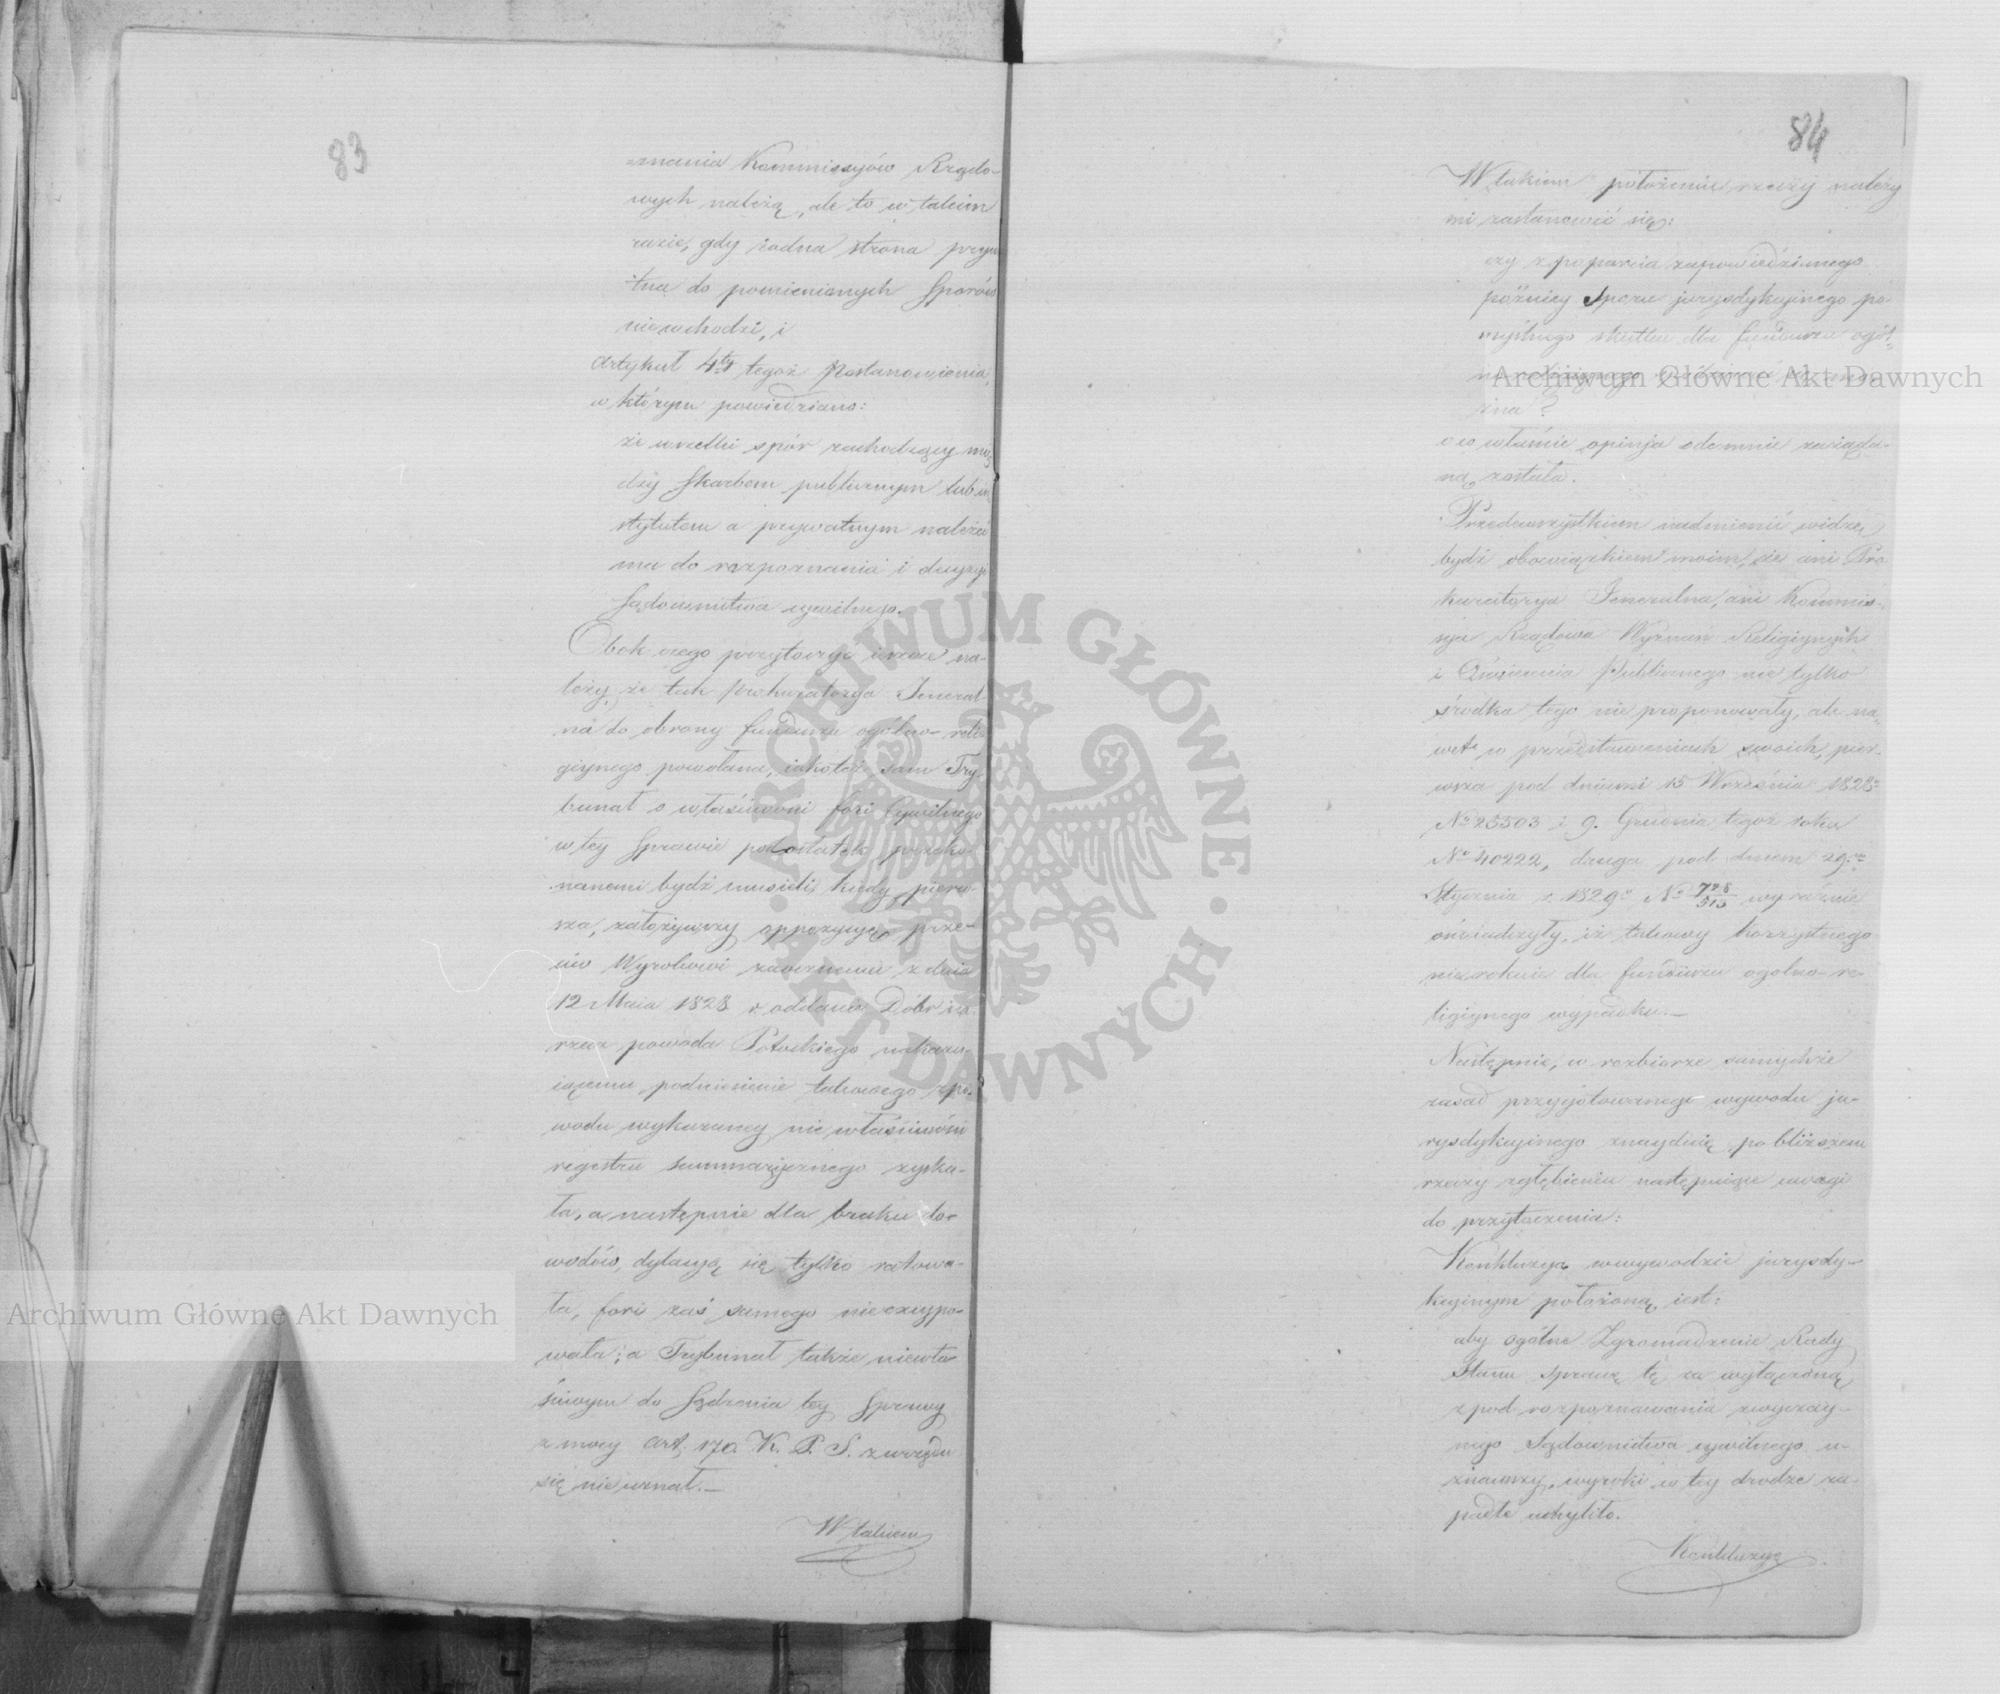 83
znania Kommissyiów Rządo-
wych należą, ale to w takim
razie, gdy żadna strona pryw
tna do pomienionych Sporów
nie wchodzi, i
Artykuł 4ty tegoż Postanowienia,
w którym powiedziano:
że wszelki spór zachodzący mię
dzy Skarbem publicznym lub in
stytutem a prywatnym należeć
ma do rozpoznania i decyzyi
Sądownictwa cywilnego.
Obok czego przytoczyć ieszcze na-
leży, że tak Prokuratorya Jeneral-
na do obrony funduszu ogólno-reli
giynego powołana, iakoteż sam Try-
bunał o właściwości fori Cywilnego
w tey Sprawie przeko-
nanemi bydź musieli, kiedy pierw-
sza, założywszy oppozycyę prze-
ciw Wyrokowi zaocznemu z dnia
12 Maia 1828 r. oddanie Dóbr na
rzecz powoda Potockiego nakazu-
iącemu, podniesienie takowego z po-
wodu wykazaney niewłaściwości
regestru summarycznego zyska-
ła, a następnie dla braku do-
wodów, dylacyą się tylko ratowa-
ła, fori zaś samego nie excypo-
wała; a Trybunał także niewła-
ściwym do Sądzenia tey Sprawy
z mocy Art. 170. K. P. S. z urzędu
się nie uznał.—
W takiem
84
W takiem położeniu rzeczy należy
mi zastanowić się:
czy z poparcia zapowiedzianego
późniey Sporu jurysdykcyinego po
myślnego skutku dla funduszu ogól-
żna?
o co właśnie opinja odemnie zażąda-
ną została.
Przedewszystkiem nadmienić widzę
bydź obowiązkiem moim, że ani Pro
kuratorya Jeneralna, ani Kommis-
sya Rządowa Wyznań Religiynych
i Oświecenia Publicznego nie tylko
środka tego nie proponowały, ale na-
wet w przedstawieniach swoich, pier-
wsza pod dniami 15 Września 1828 r
No 25303 i 9. Grudnia tegoż roku
No 40222, druga pod dniem 29.
Stycznia r. 1829 No 728/515 wyraźnie
oświadczyły, iż takowy korzystnego
nie rokuie dla funduszu ogólno-re-
ligiynego wypadku.—
Następnie, w rozbiorze samychże
zasad przygotowanego wywodu ju-
rysdykcyinego znayduię po bliższem
rzeczy zgłębieniu następuiące uwagi
do przytoczenia:
Konkluzya w wywodzie jurysdy-
kcyinym położoną iest:
aby ogólne Zgromadzenie Rady
Stanu sprawę tę za wyłączoną
z pod rozpoznawania zwyczay-
nego Sądownictwa cywilnego u-
znawszy, wyroki w tey drodze za-
padłe uchyliło.
Konkluzya
Archiwum Główne Akt Dawnych
Archiwum Główne Akt Dawnych
ARCHIWUM GŁÓWNE · AKT DAWNYCH ·